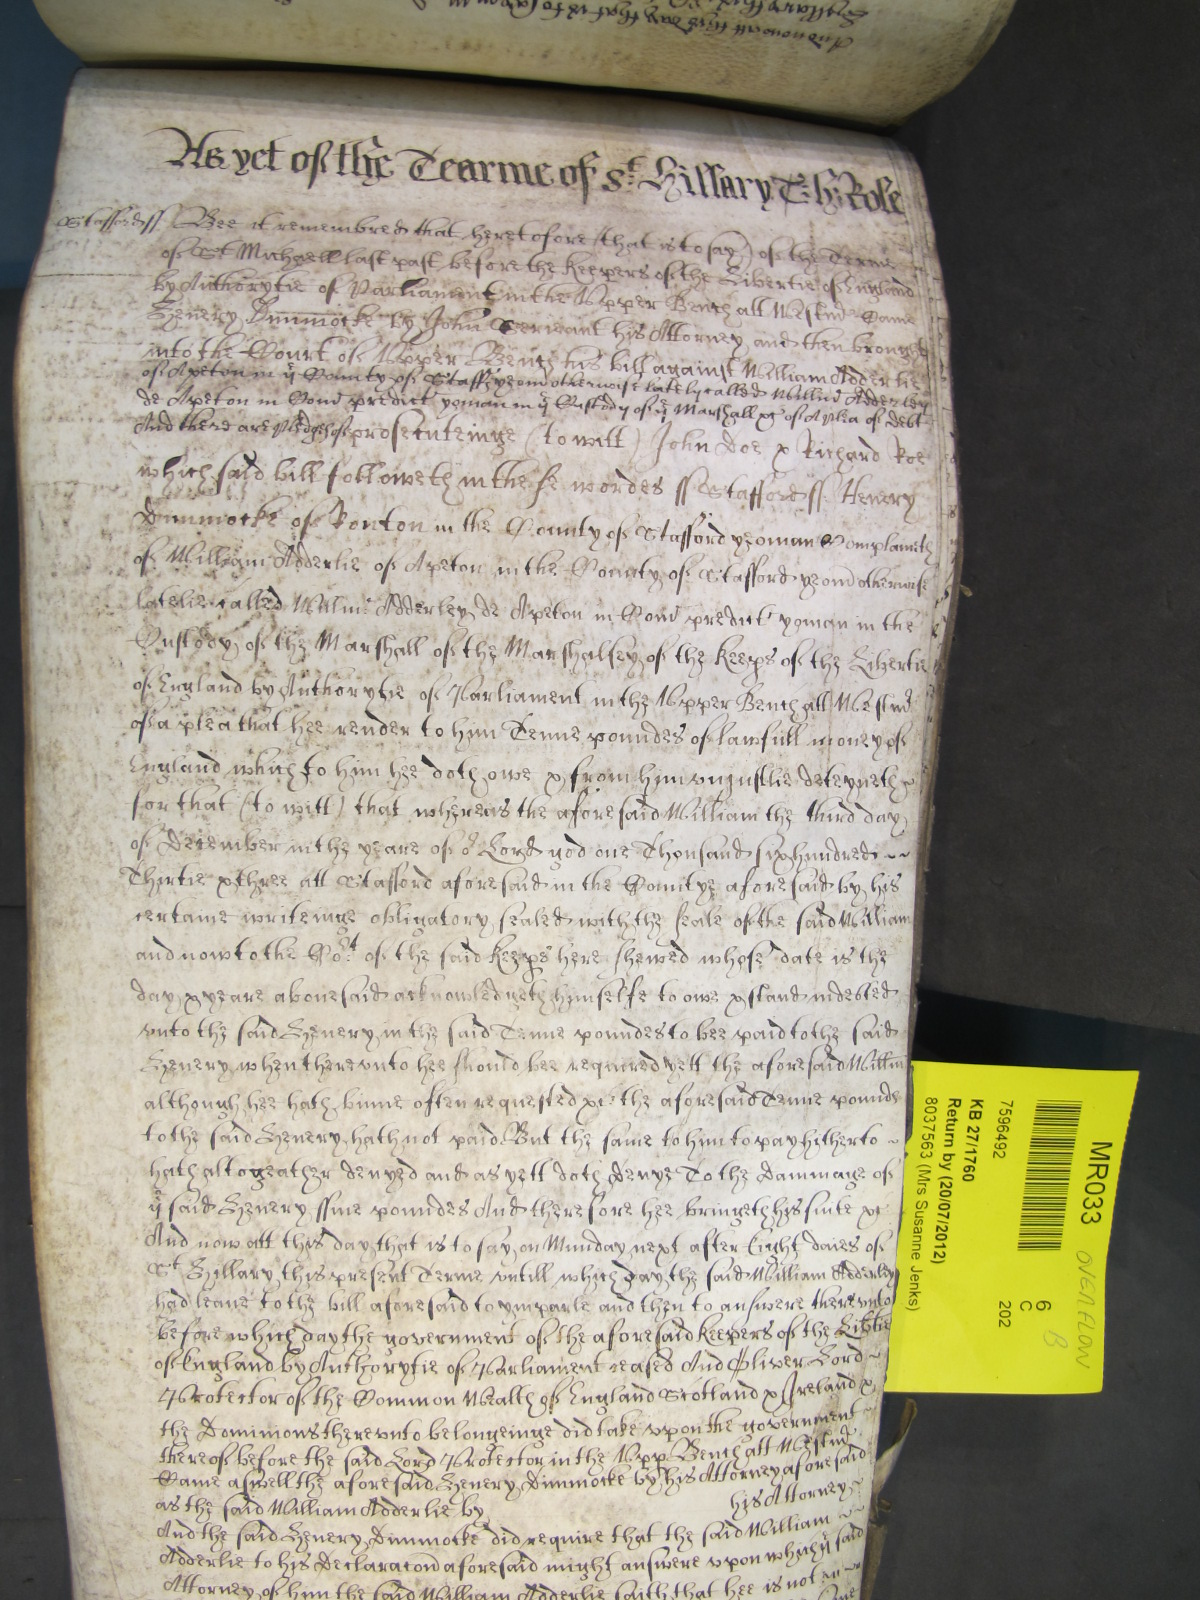 And now att this day that is to say on
As yet of the Tearme of St Hillary
Staffordss Bee it remembred that heretofore (that is to say) of the Terme
of St Michaell last past before the Keepers of the Libertie of England
by Authorytie of Parliament in the Upper Bench att Westmr Came
Henery Dimmocke by John his Attorney and then brought
into the Court of Upper Bench his bill against William Adderlie
of Apeton in ye County of Staff yeom otherwise lately called Willm Adderley
de Apeton in Com predict yoman in ye Custody of ye Marshall &c of a plea of debt
And there are pledges of prosecuteinge (to witt) John Doe & Richard Roe
which said bill followeth in these wordes ss Staffordss Henery
Dimmocke of Ronton in the County of Stafford yeoman Complaineth
of William Adderlie of Apeton in the County of Stafford yeom otherwise
latelie called Willm Adderley de Apeton in Com predict yoman in the
Custody of the Marshall of the Marshalsey of the Keeps of the Libertie
of England by Authorytie of Parliament in the Upper Bench att Westmr
of a plea that hee render to him Tenne poundes of lawfull money of
England which to him hee doth owe & from him uniustlie deteyneth
for that (to witt) that whereas the aforesaid William the third day
of December in the yeare of or Lord god one Thousand six hundred
Thirtie & three att Stafford aforesaid in the Countye aforesaid by his
certaine writeinge obligatory sealed with the seale of the said William
and now to the Cort of the said Keeps here shewed whose date is the
day & yeare abovesaid acknowledgeth himselfe to owe & stand indebted
unto the said Henery in the said Tenne poundes to bee paid to the said
Henery when thereunto hee should bee required yett the aforesaid Willm
although hee hath binne often requested &c the aforesaid Tenne pounds
to the said Henery hath not paid But the same to him to pay hitherto
hath altogeather denyed and as yett doth denye To the Dammage of
ye said Henery ffive poundes And therefore hee bringeth his suite &c
And now att this day that is to say on Munday next after Eight daies of
St Hillary this present Terme untill which day the said William Adderley
had leave to the bill aforesaid to ymparle and then to answere thereunto
before which day the government of the aforesaid Keepers of the Libtie
of England by Authorytie of Parliament ceased And Oliver Lord
Protector of the Common Wealth of England Scotland & Ireland &
the Dominions thereunto belongeinge did take upon the government
thereof before the said Lord Protector in the Upp Bench att Westmr
Came aswell the aforesaid Henery Dimmocke by his Attorney aforesaid
as the said William Adderlie by his Attorney
And the said Henery Dimmocke did require that the said William
Adderlie to his Declaracon aforesaid might answere upon which ye said
Attorney of him the said William Adderlie saith that hee is not
MR033
OVERFLOW
6
C
202
7596492
KB 27/1760
Return by (20/07/2012)
8037563 (Mrs Susanne Jenks)